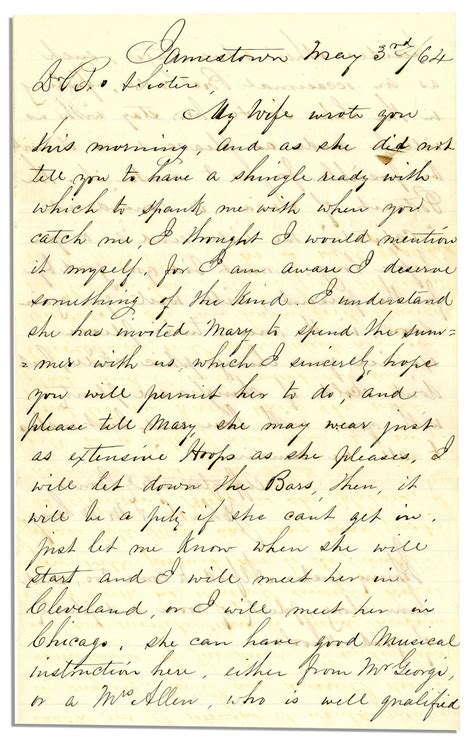 Jamestown May 3rd/64
Dr Br. & Sister,
My Wife wrote you
this morning, and as she did not
tell you to have a shingle ready with
which to spank me with when you
catch me, I thought I would mention
it myself, for I am aware I deserve
something of the kind. I understand
she has invited Mary to spend the sum-
=mer with us, which I sincerely hope
you will permit her to do, and
please tell Mary, she may wear just
as extensive Hoops as she pleases, I
will let down the Bars, then, it
will be a pity if she cant get in.
just let me Know when she will
start and I will meet her in
Cleveland, or I will meet her in
Chicago, she can have good Musical
instruction here, either from Mr George,
or a Mrs Allen, who is well qualified